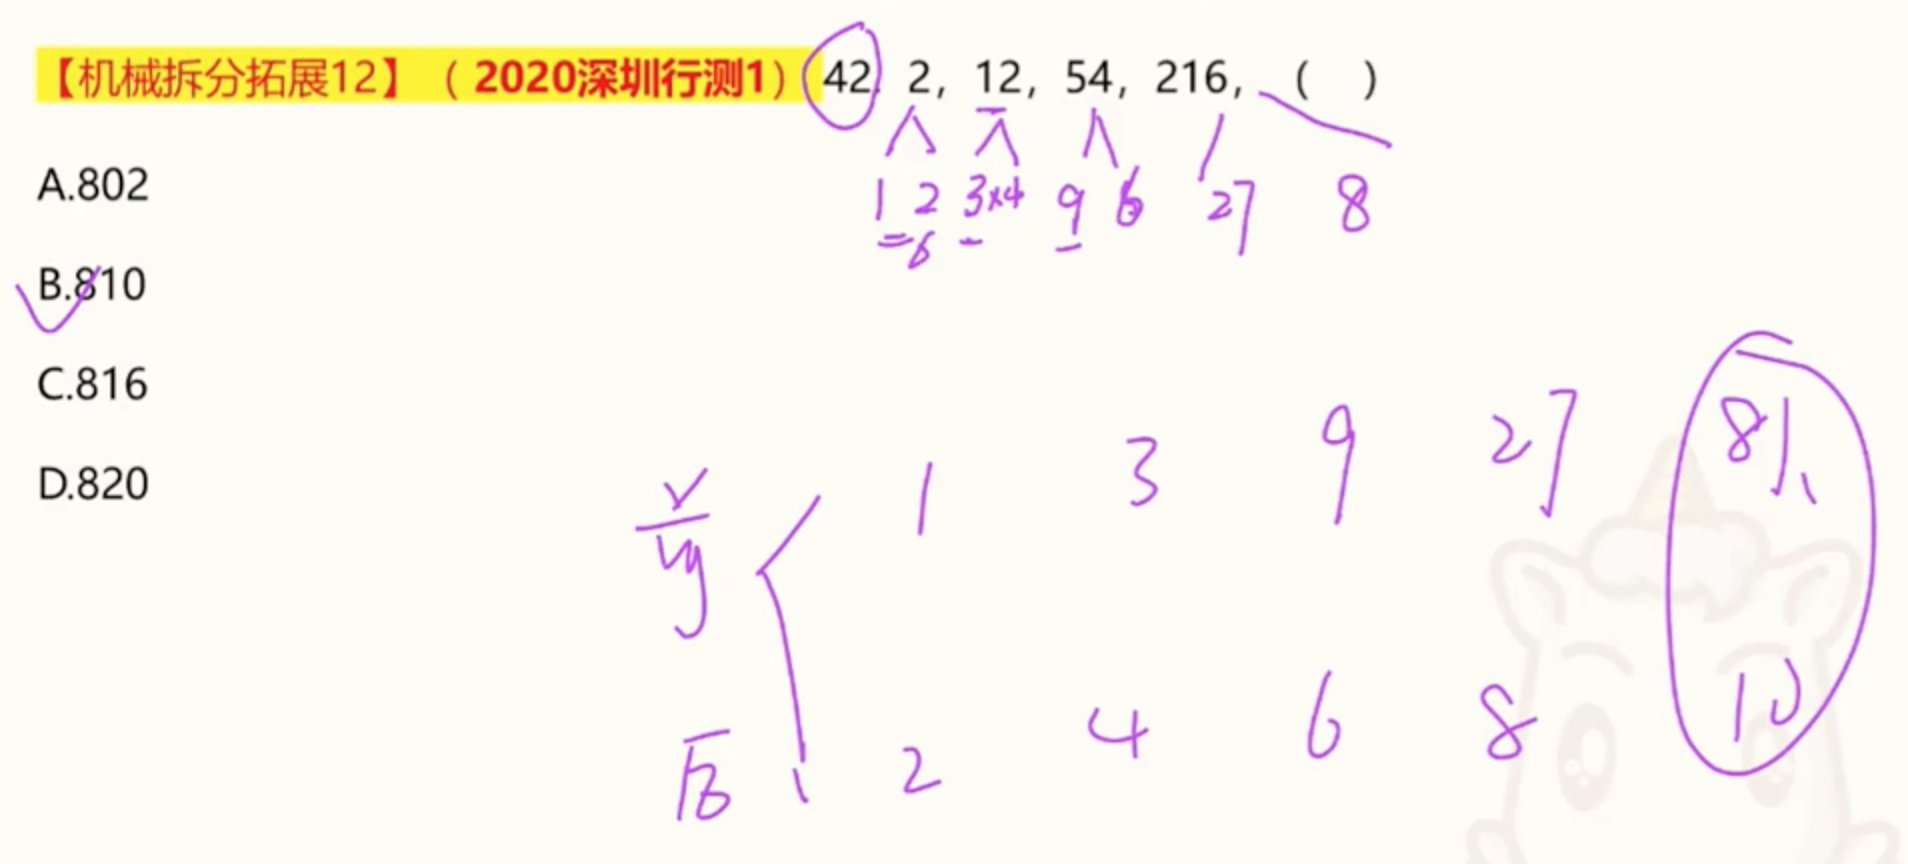 【机械拆分拓展12】（2020深圳行测1）42. 2，12，54，216，（ ）
1 2 3×4 9 6 27 8
=6
A.802
B.810
C.816
D.820
1 3 9 27 81
后 2 4 6 8 10